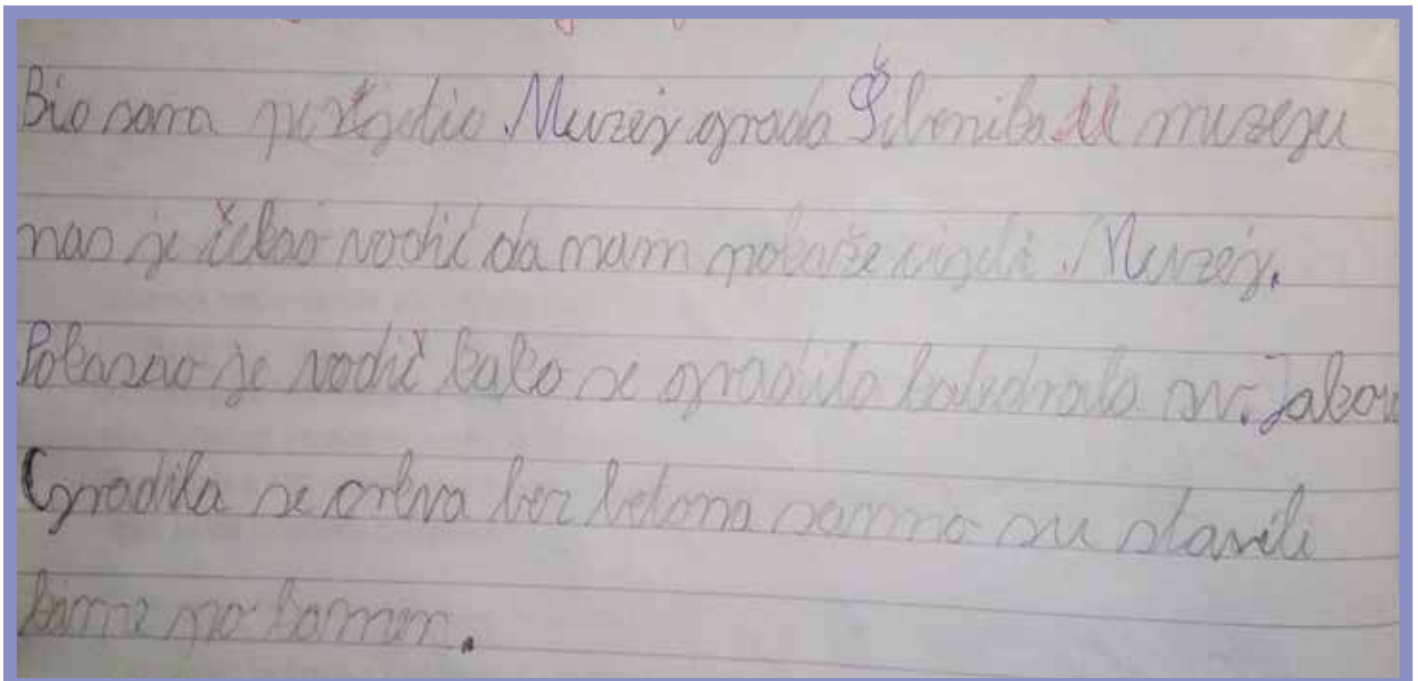 Bio sam posjetio Muzej grada Šibenika U muzeju
nas je čekao vodič da nam pokaže cijeli Muzej.
Pokazao je vodič kako se gradila katedrala sv. Jakov
Gradila se crkva bez betona samo su stavili
kamen na kamen.